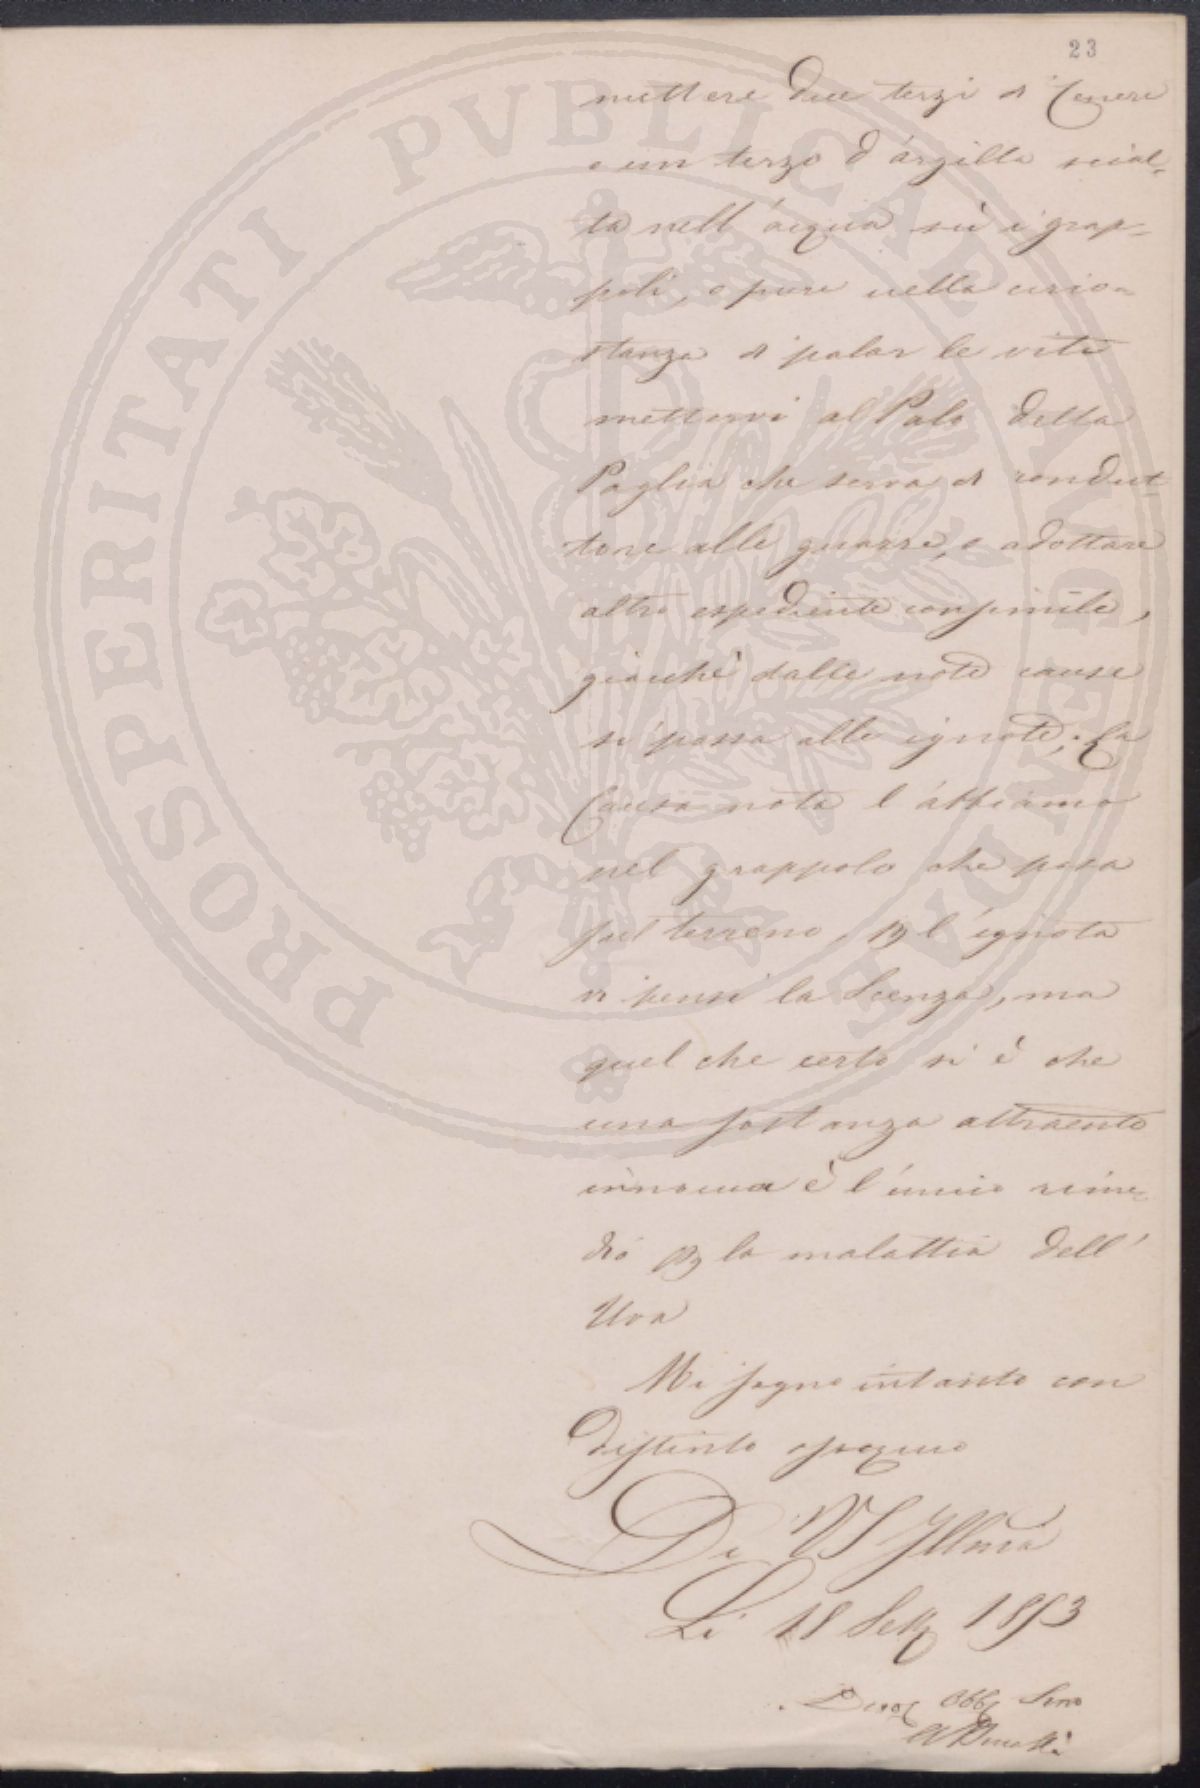 23
mettere due terzi di Cenere
e un terzo d'argilla sciol-
ta nell'acqua sù i grap-
poli, o pure nella circo-
stanza di palar le vite
mettervi al Palo della
Paglia che serva di condut-
tore alle guazze, o adottare
altro espediente consimile,
giacchè dalle note cause
si passa alle ignote. La
Causa nota l'abbiamo
nel grappolo che posa
sul terreno, p l'ignota
vi pensi la Scenza, ma
quel che certo si è che
una sostanza attraente
innocua è l'unico rime-
dio p la malattia dell'
Uva
Mi segno intanto con
distinto ossequio
Di VS Illma
Li 18 Sett 1853
Devot Obbg Servo
PROSPERITATI PVBLICAE AVGENDAE